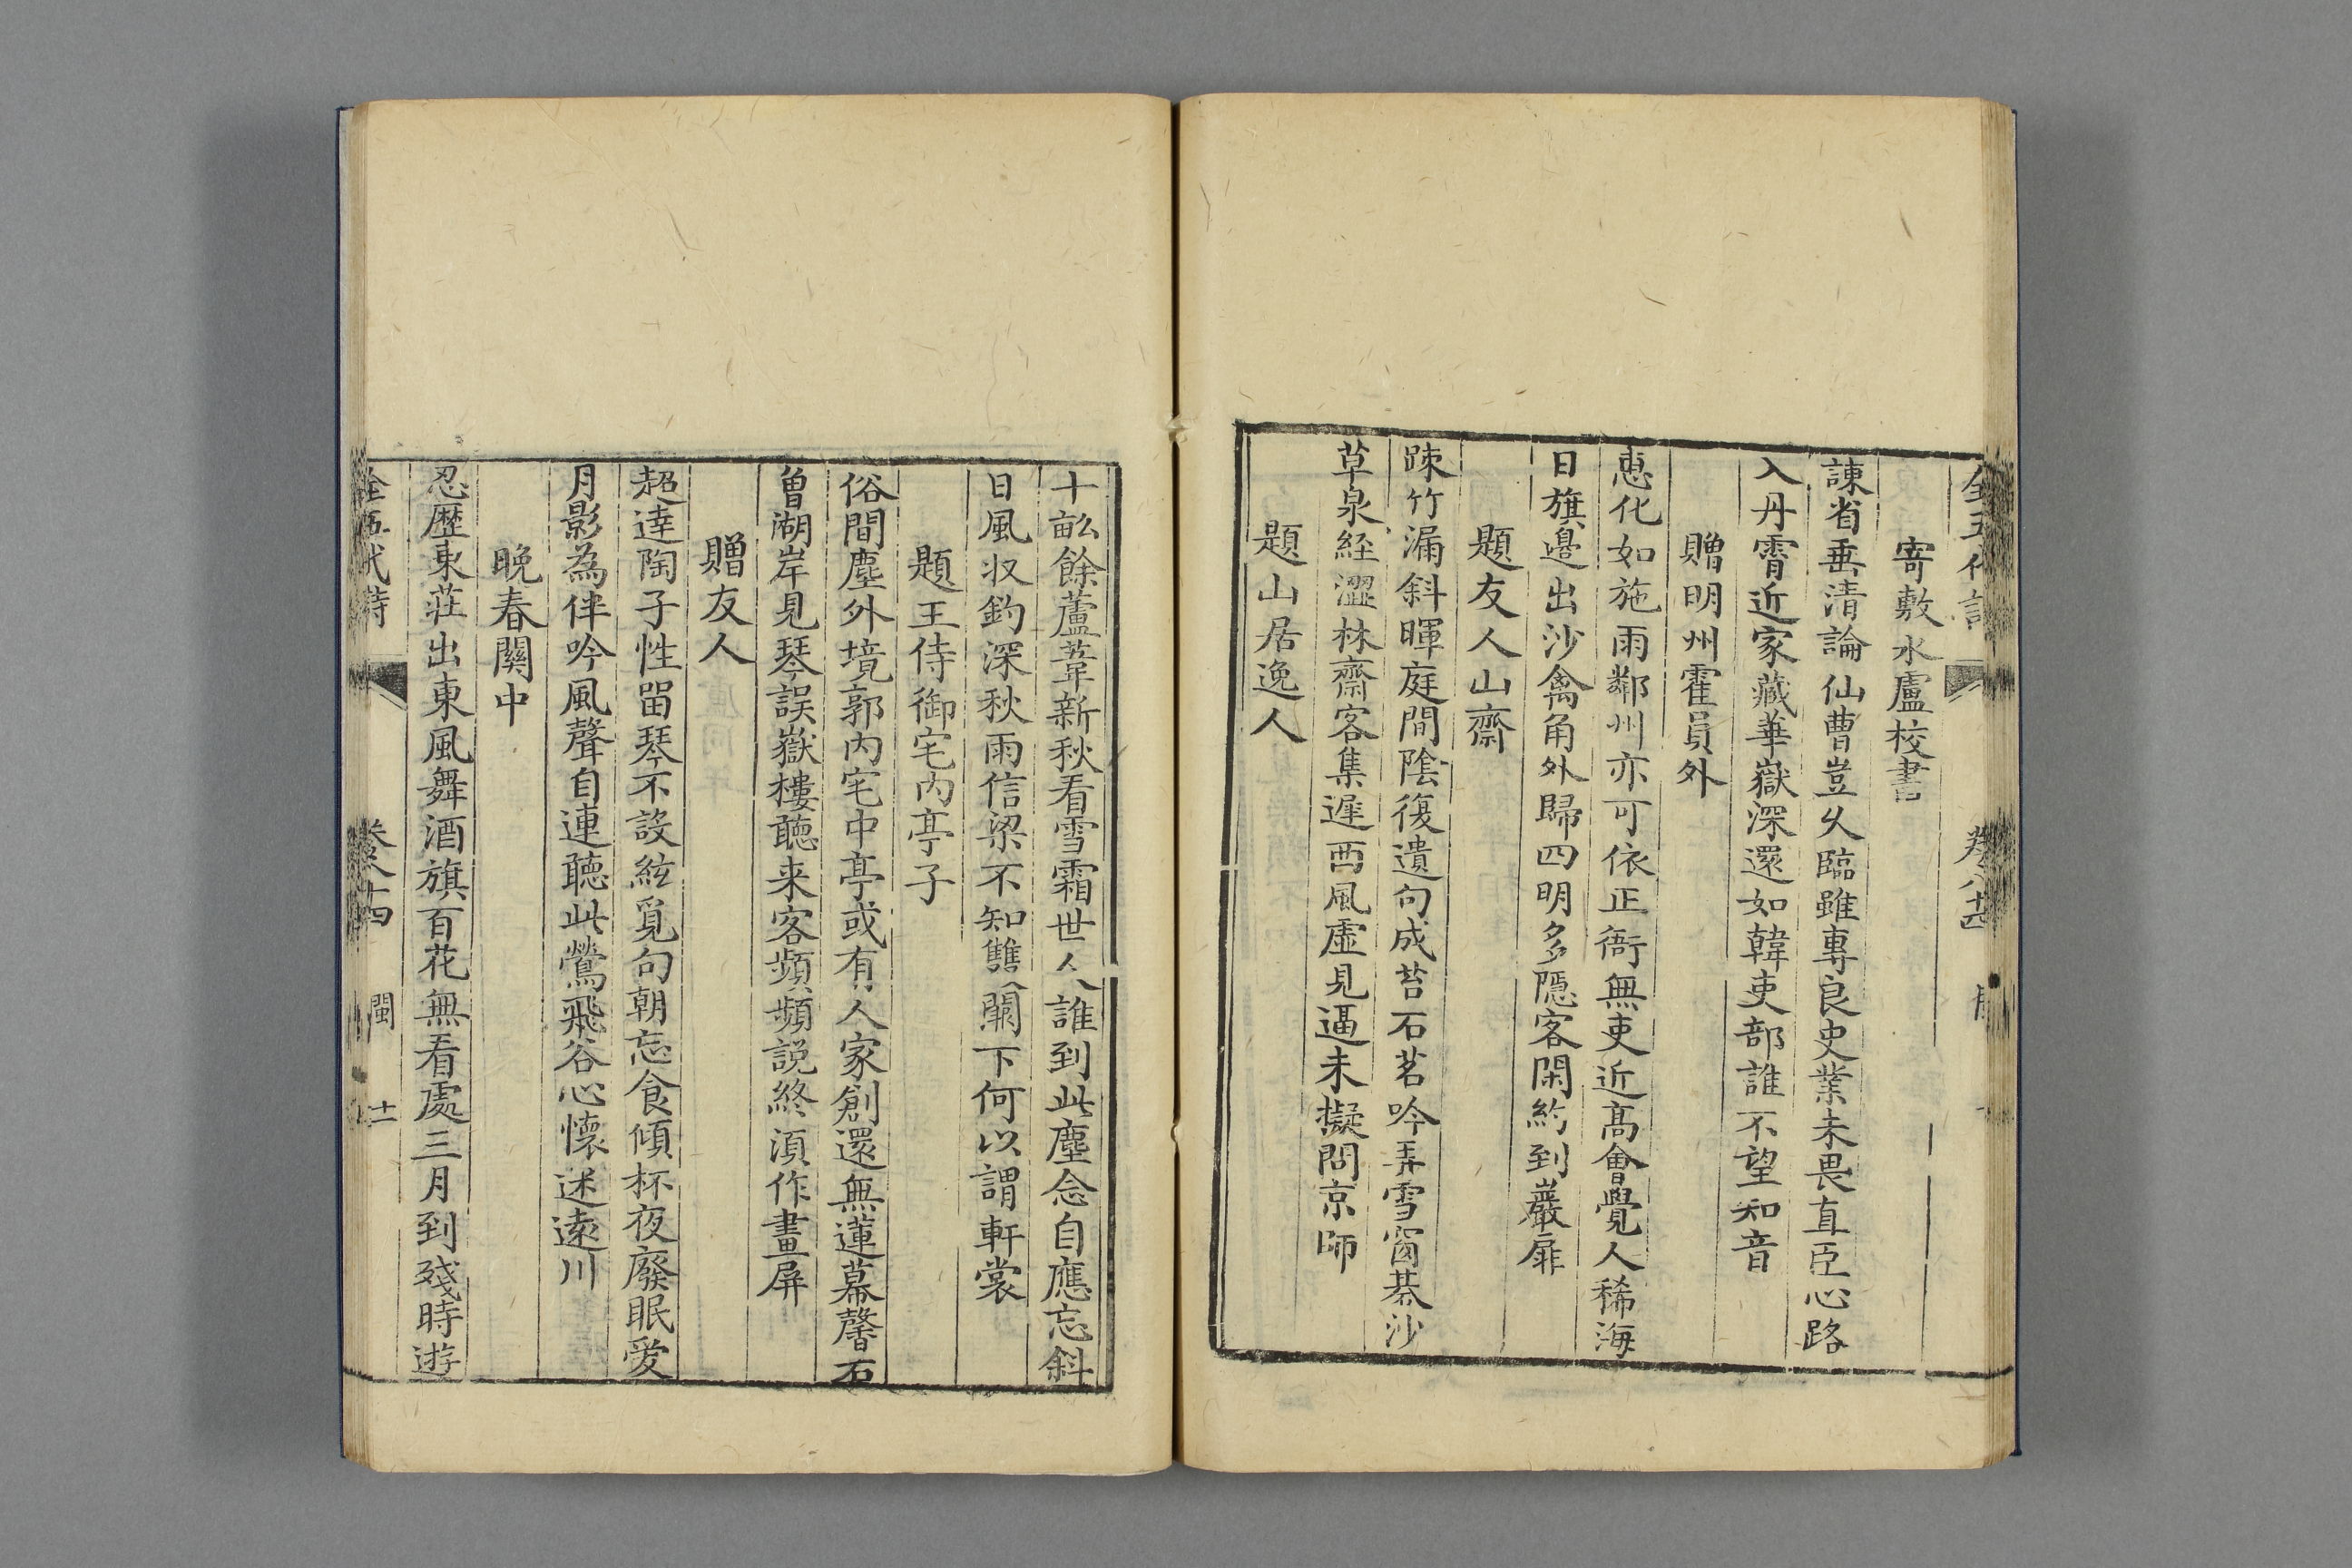 全五代詩 卷八十四
寄敷水盧校書
諫省垂清論仙曹豈久臨雖專良史業未畏直臣心路
入丹霄近家藏華嶽深還如韓吏部誰不望知音
贈明州霍員外
惠化如施雨鄰州亦可依正衙無吏近髙會覺人稀海
日旗邊出沙禽角外歸四明多隱客閑約到巖扉
題友人山齋
踈竹漏斜暉庭間陰復遺句成苔石茗吟弄雪窗棊沙
草泉經澀林齋客集遲西風虛見逼未擬問京師
題山居逸人
十畝餘蘆葦新秋看雪霜世人誰到此塵念自應忘斜
日風収釣深秋雨信梁不知雙闕下何以謂軒裳
題王侍御宅内亭子
俗間塵外境郭内宅中亭或有人家創還無蓮幕馨石
曽湖岸見琴誤嶽樓聽来客頻頻説終湏作畫屏
贈友人
超達陶子性留琴不設絃覓句朝忘食傾杯夜廢眠愛
月影為伴吟風聲自連聽此鶯飛谷心懷迷遠川
晚春關中
忍歷東莊出東風舞酒旗百花無看處三月到殘時逰
全五代詩 卷八十四 閩 十一